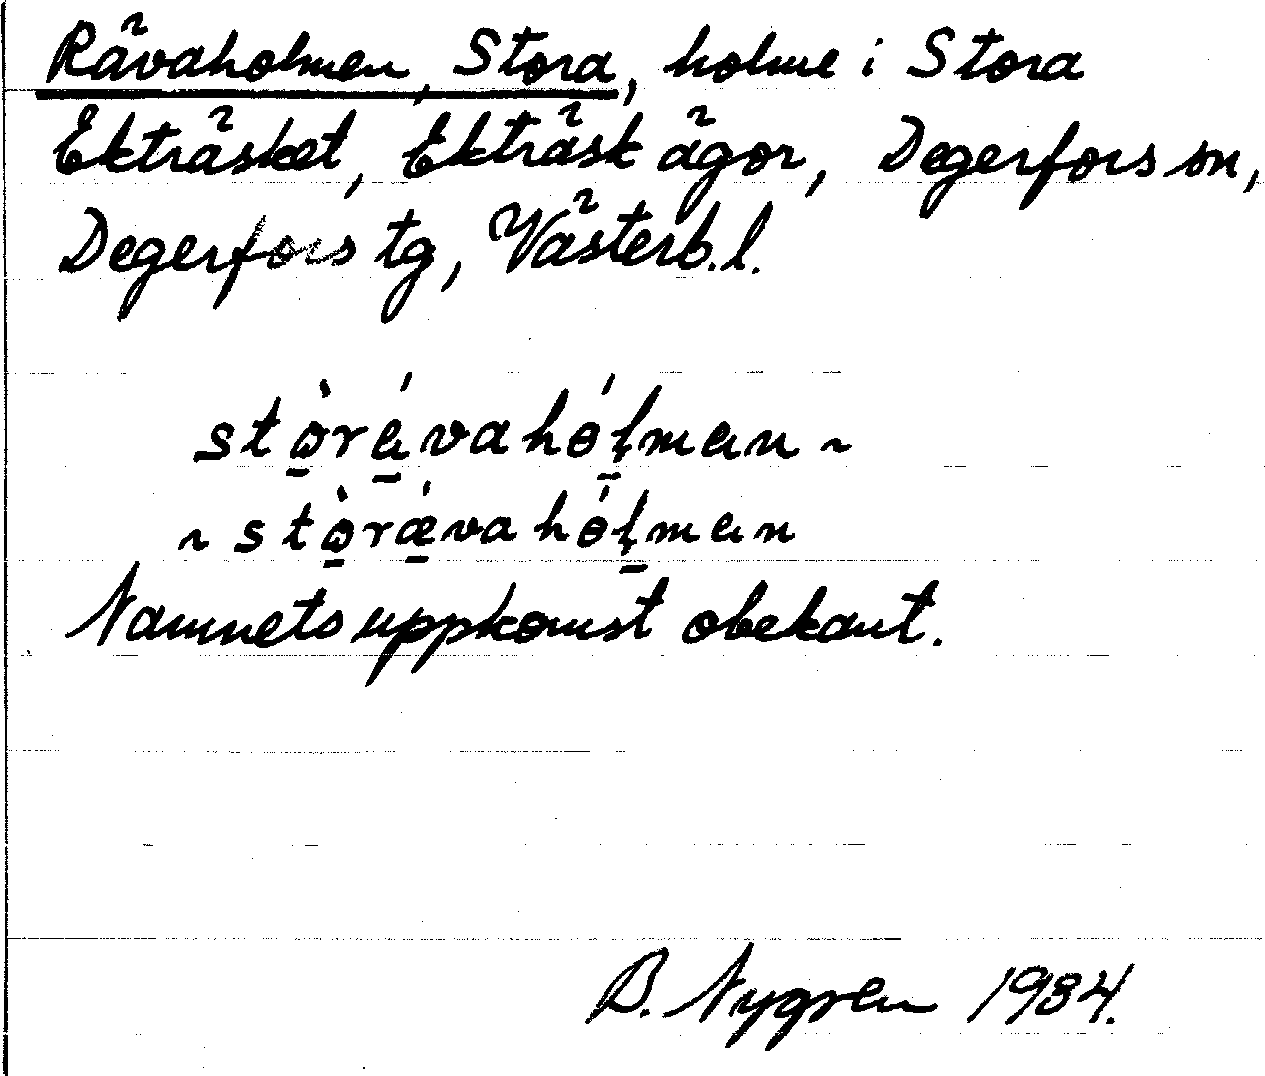 Rävaholmen, Stora, holme i Stora
Ekträsket, Ekträsk ägor, Degerfors sn,
Degerfors tg, Västerb. l.
stò̱rá̱vahó̱ḷman ~
~ stò̱rǽ̱vahó̱ḷman
Namnets uppkomst obekant.
B. Nygren 1934.